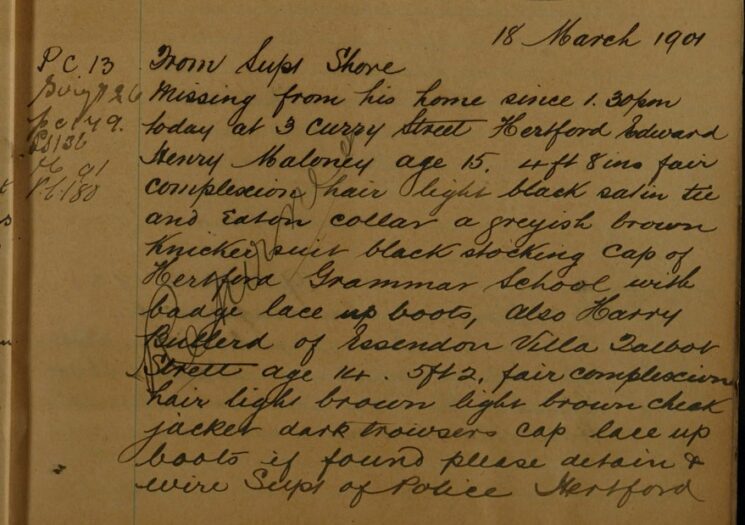 18 March 1901
P C 13 From Supt Shore
Sergt 26 Missing from his home since 1.30pm
p c 49. today at 3 Curry Street Hertford Edward
PS136 Henry Maloney age 15. 4ft 8ins fair
91 complexion hair light black satin tie
P.C. 180 and Eaton collar a greyish brown
Knicker suit black stocking Cap of
Hertford Grammar School with
badge lace up boots, also Harry
Bullerd of Essendon Villa Talbot
Street age 14. 5ft 2. fair complexion
hair light brown light brown check
jacket dark trowsers cap lace up
boots if found please detain &
wire Supt of Police Hertford
Returned